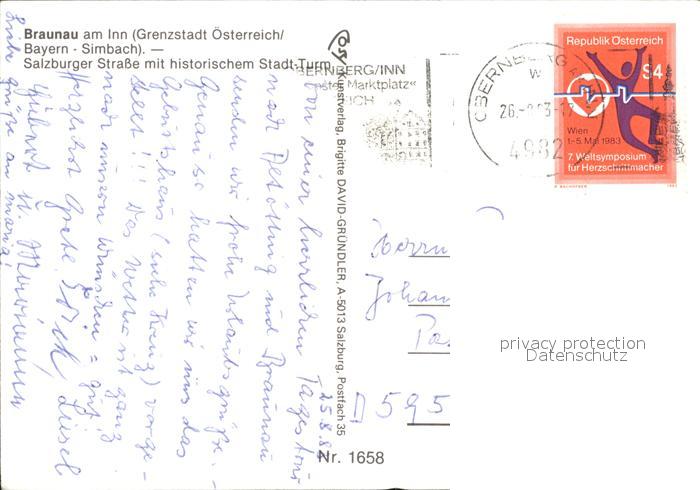 Braunau am Inn (Grenzstadt Österreich/
Bayern - Simbach). —
Salzburger Straße mit historischem Stadt-Turm
Kunstverlag, Brigitte DAVID-GRÜNDLER, A-5013 Salzburg, Postfach 35
Nr. 1658
BERNBERG/INN
Marktplatz“
OBERNBERG
26.
-17
4982
Republik Österreich
S4
Wien
1.-5. Mai 1983
7. Weltsymposium
für Herzschrittmacher
1983
25.8.83
Von einer herrlichen Tagestour
nach Altötting und Braunau
senden wir frohe Urlaubsgrüße. -
Genauso hatten wir uns das
Geburtshaus (siehe Kreuz) vorge-
stellt!!! Das Wetter ist ganz
nach unseren Wünschen = gut!
Herzlichst Grete, Erich, Liesel
Hubert u. Marianne
Liebe Grüße an Maria!
Herrn
Johan
Pa
D 595
privacy protection
Datenschutz